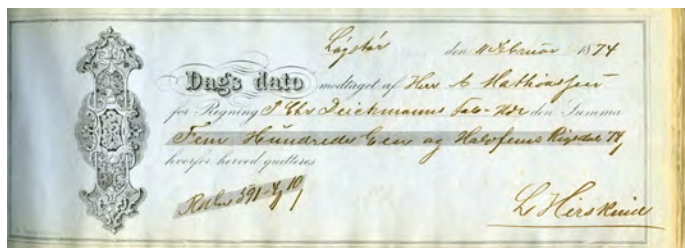 Løgstør den 11 Februar 1874
Dags dato modtaget af Herr C Mathiassen
for Regning P Chr Deichmanns den Summa
Fem Hundrede Een og Halvfems Rigsdal
hvorfor herved quitteres
591 10
L Hirsknud